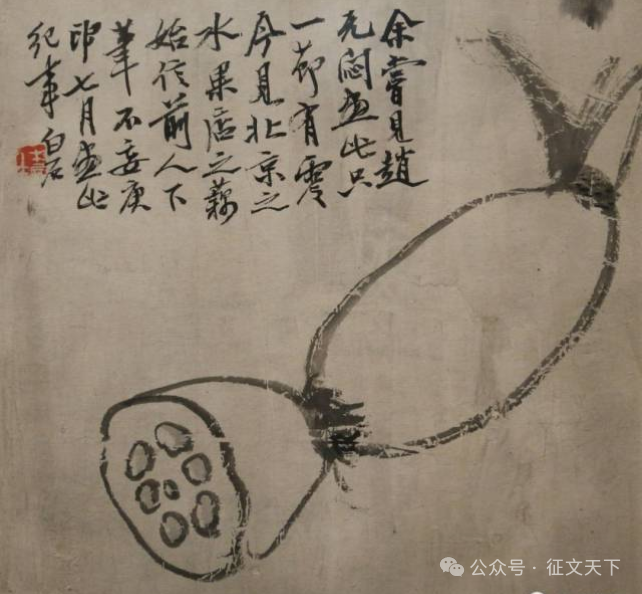 余嘗見趙
无悶畫此只
一節有零
今見北京之
水果店之藕
始信前人下
筆不妄庚
申七月畫此
紀事 白石
公众号 · 征文天下